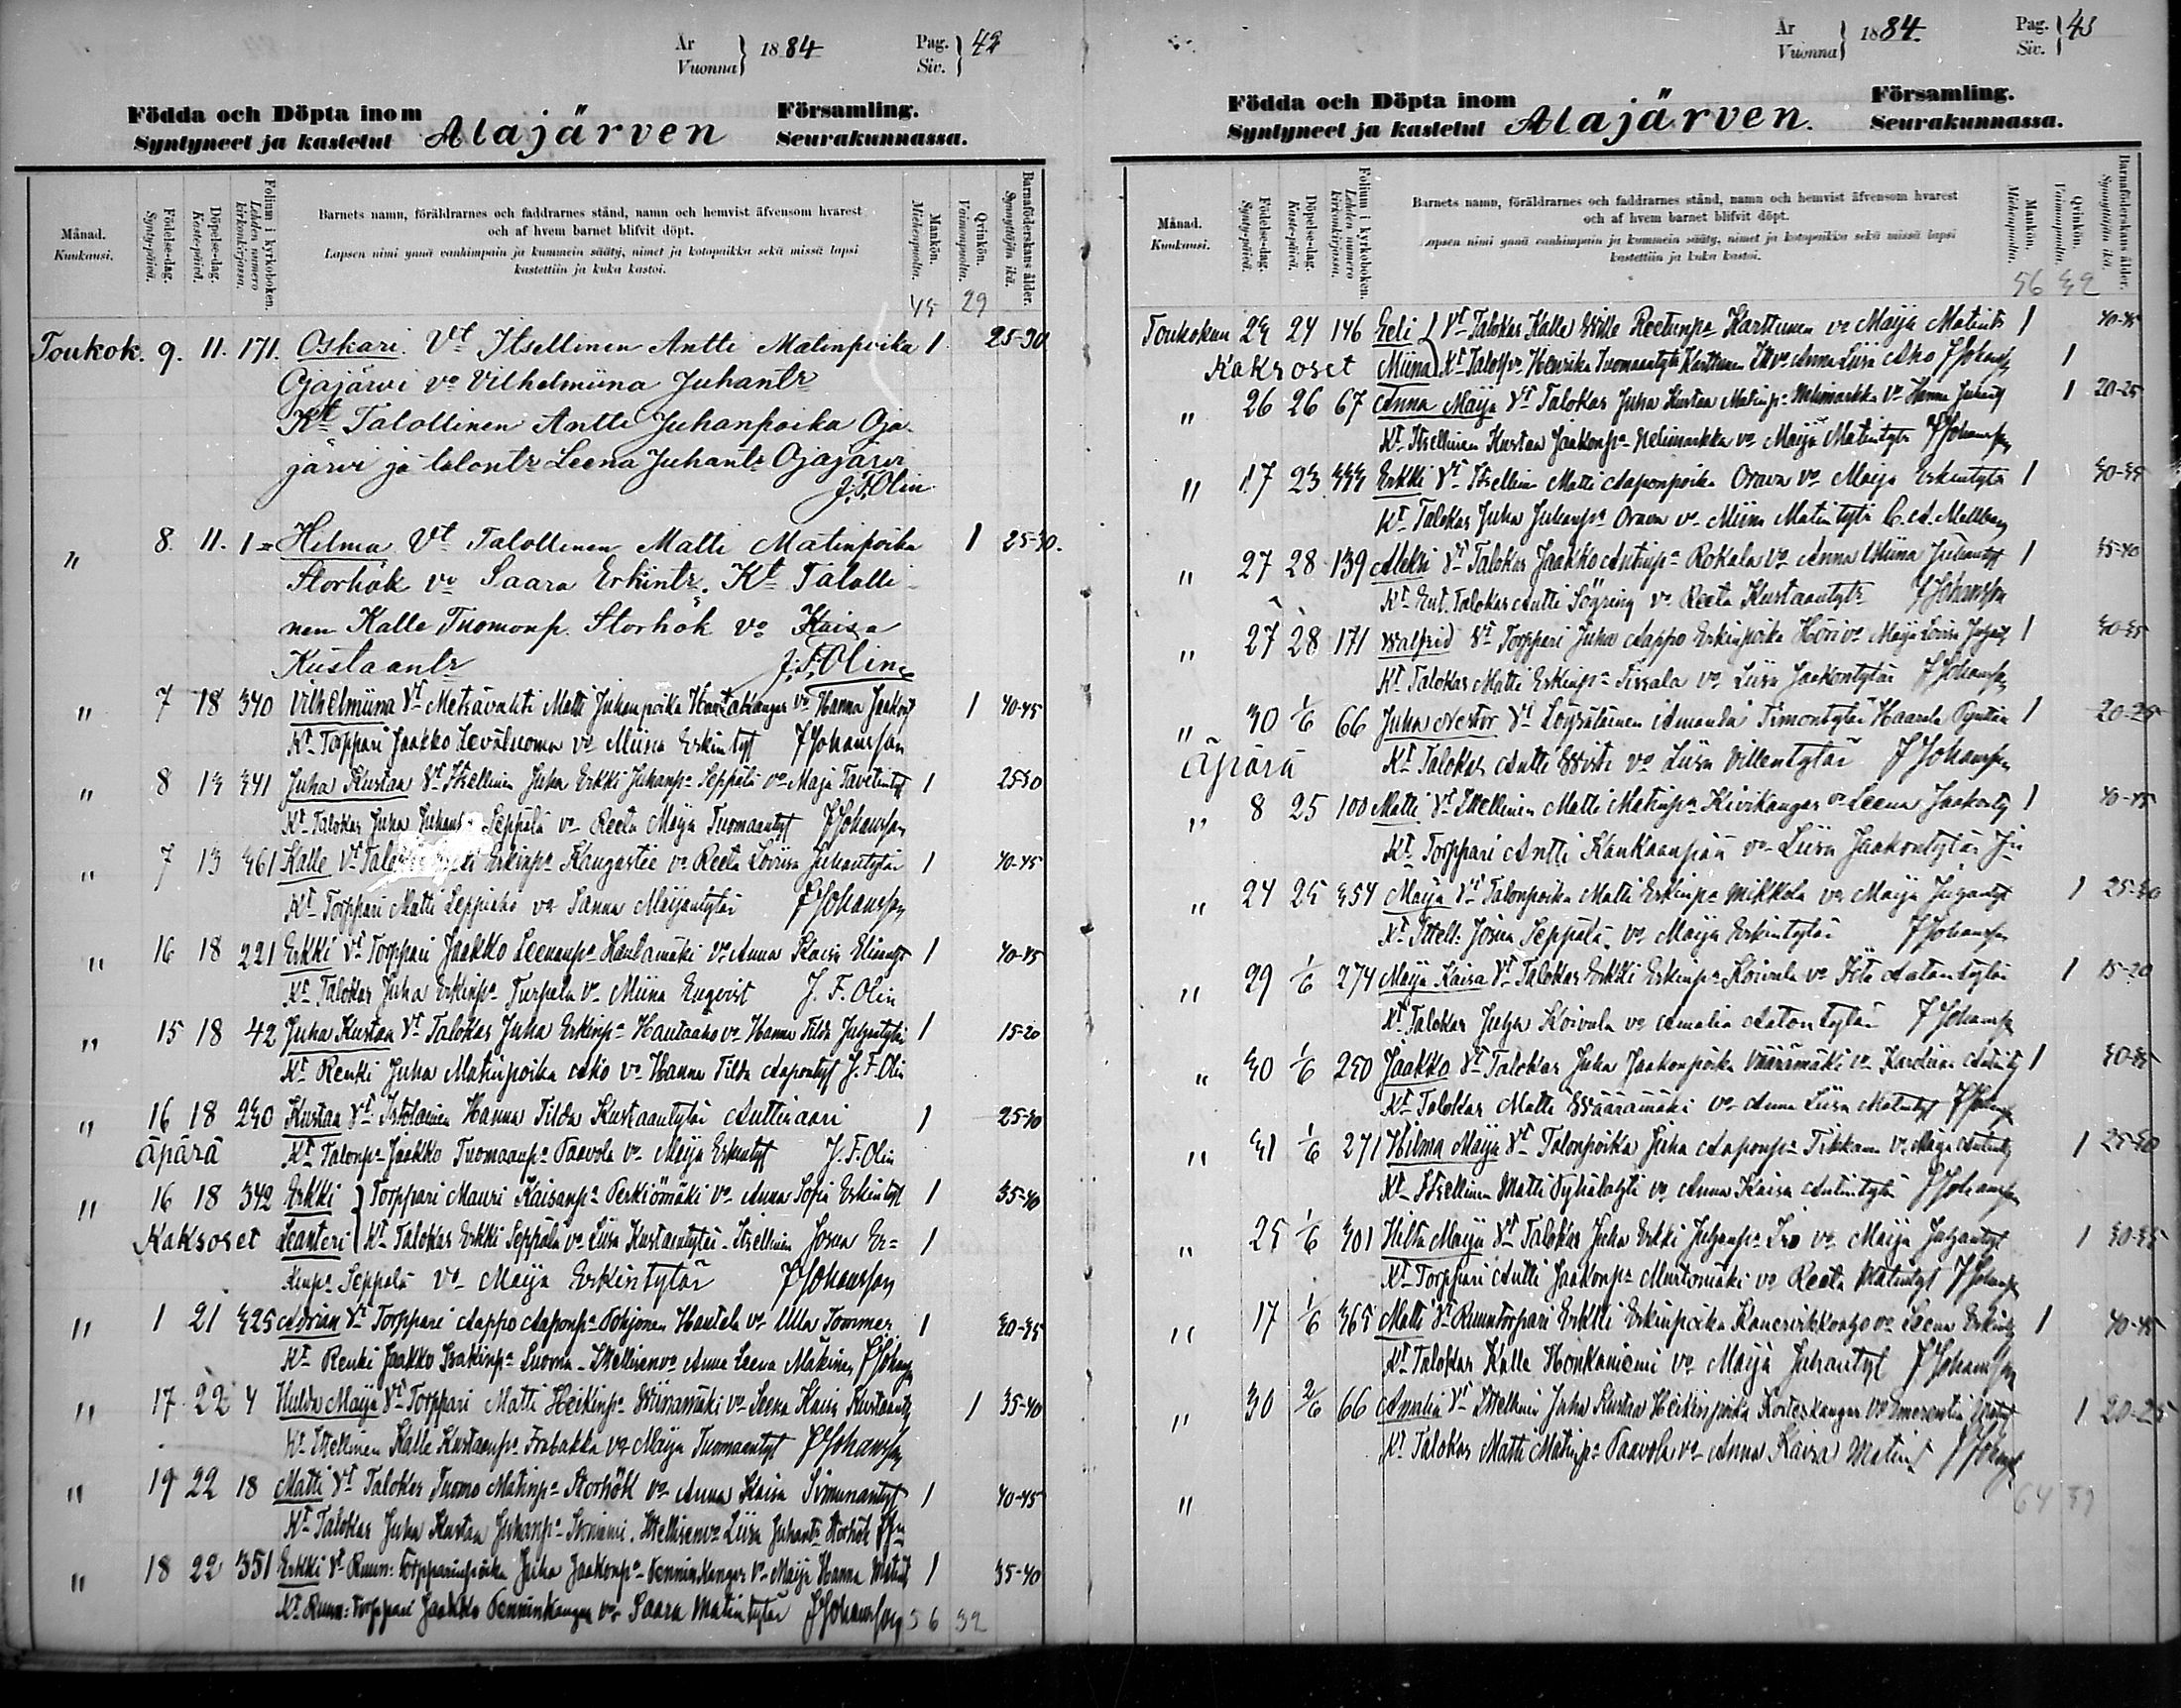 År
Vuonna } 1884
Pag.
Siv. } 42
Födda och Döpta inom
Syntyneet ja kastetut
Alajärven
Församling.
Seurakunnassa.
Månad.
Kuukausi.
Födelse-dag.
Synty-päivä.
Döpelse-dag.
Kaste-päivä.
Folium i kyrkoboken.
Lehden numero kirkonkirjassa.
Barnets namn, föräldrarnes och faddrarnes stånd, namn och hemvist äfvensom hvarest
och af hvem barnet blifvit döpt.
Lapsen nimi ynnä vanhimpain ja kummein sääty, nimet ja kotopaikka sekä missä lapsi
kastettiin ja kuka kastoi.
Mankön.
Miehenpuolta.
Qvinkön.
Vaimonpuolta.
Barnaföderskans ålder.
Synnyttäjän ikä.
45 29
Toukok. 9. 11. 171. Oskari. Vt Itsellinen Antti Matinpoika 1 25-30
Ojajärvi vo Vilhelmiina Juhantr
Kt Talollinen Antti Juhanpoika Oja-
järvi ja talontr Leena Juhantr Ojajärvi
J.F.Olin
" 8. 11. 1 Hilma Vt Talollinen Matti Matinpoika 1 25-30.
Storhök vo Saara Erkintr. Kt Talolli-
nen Kalle Tuomonp. Storhök vo Kaisa
Kustaantr J.F.Olin
" 7 18 340 Vilhelmiina Vt Metsävahti Matti Juhanpoika vo Hanna 1 40-45
Kt Torppari Jaakko Leväluoma vo Miina Erkintyt JJohansson
" 8 13 341 Juha Kustaa Vt Itsellinen Juha Erkki Juhanpa Seppälä vo Maja Tavetintyt 1 25-30
Kt Talokas Juha Seppälä vo Reeta Maija Tuomaantyt JJohansson
" 7 13 361 Kalle Vt Erkinpa Kangastie vo Reeta Loviisa Juhantytär 1 40-45
Kt Torppari Matti Leppiaho vo Sanna Maijantytär JJohansson
" 16 18 221 Erkki Vt Torppari Jaakko Leenanpa Hautamäki vo Anna Kaisa 1 40-45
Kt Talokas Juha Erkinpa Turpela vo Miina Enqvist J. F. Olin
" 15 18 42 Juha Kustaa Vt Talokas Juha Erkinpa Hautaaho vo Hanna Tilda Juhantytär 1 15-20
Kt Renki Juha Matinpoika Aho vo Hanna Tilda Aapontyt J. F. Olin
" 16 18 230 Kustaa Vt Hanna Tilda Kustaantytär 1 25-30
Äpärä Kt Talonpa Jaakko Tuomaanpa Paavola vo Maija Erkintyt J. F. Olin
" 16 18 342 Erkki } Torppari Mauri Kaisanpa Perkiömäki vo Anna Sofia Erkintyt 1 35-40
Kaksoset Leanteri Kt Talokas Erkki Seppälä vo Liisa Kustaantytär - Itsellinen Josua Er= 1
kinpa Seppälä vo Maija Erkintytär JJohansson
" 1 21 325 Adrian Vt Torppari Aappo Aaponpa Pohjonen Hautala vo Ulla 1 30-35
Kt Renki Jaakko Luoma - Itsellisenvo Anna Leena Mäkinen
" 17 22 4 Hulda Maija Vt Torppari Matti Heikinpa vo Leena Kaisa 1 35-40
Kt Itsellinen Kalle Kustaanpa vo Maija Tuomaantyt JJohansson
" 19 22 18 Matti Vt Talokas Tuomo Matinpa Storhök vo Anna Kaisa Simunantyt 1 40-45
Kt Talokas Juha Kustaa Juhanpa Itsellisenvo Liisa Juhantr Storhök
" 18 22 351 Erkki Vt Ruun: Torpparinpoika Juha Jaakonpa Penninkangas vo Maija Hanna 1 35-40
Kt Ruun: Torppari Jaakko Penninkangas vo Saara Matintytär JJohansson
56 32
År
Vuonna } 1884.
Pag.
Siv. } 43
Födda och Döpta inom
Syntyneet ja kastetut
Alajärven.
Församling.
Seurakunnassa.
Månad.
Kuukausi.
Födelse-dag.
Synty-päivä.
Döpelse-dag.
Kaste-päivä.
Folium i kyrkoboken.
Lehden numero kirkonkirjassa.
Barnets namn, föräldrarnes och faddrarnes stånd, namn och hemvist äfvensom hvarest
och af hvem barnet blifvit döpt.
Lapsen nimi ynnä vanhimpain ja kummein sääty, nimet ja kotopaikka sekä missä lapsi
kastettiin ja kuka kastoi.
Mankön.
Miehenpuolta.
Qvinkön.
Vaimonpuolta.
Barnaföderskans ålder.
Synnyttäjän ikä.
56 32
Toukokuu 23 24 146 Eeli } Vt Talokas Kalle Wille Reetunpa Karttunen vo Maija 1 40-45
Kaksoset Miina Kt Henrika Tuomaantytär Karttunen Anna Liisa Aho 1
" 26 26 67 Anna Maija Vt Talokas Juha Kustaa Matinpa Nelimarkka vo Hanna 1 20-25
Kt Itsellinen Kustaa Jaakonpa Nelimarkka vo Maija Matintytr
" 17 23 333 Erkki Vt Itsellinen Matti Aaponpoika Orava vo Maija Erkintytr 1 30-35
Kt Talokas Juha Juhanpa Orava vo Miina Matintytr C.A. Mellberg
" 27 28 139 Aleksi Vt Talokas Jaakko Antinpa Rokala vo Anna Miina Juhantyt 1 35-40
Kt Ent. Talokas Antti Sögring vo Reeta Kustaantytr JJohansson
" 27 28 171 Walfrid Vt Torppari Juha Aappo Erkinpoika vo Maija Loviisa 1 30-35
Kt Talokas Matti Erkinpa vo Liisa Jaakontytär
" 30 1/6 66 Juha Nestor Vt Amanda Timontytär Haarala 1 20-25
Äpärä Kt Talokas Antti vo Liisa Villentytär
" 8 25 100 Matti Vt Itsellinen Matti Matinpa Kivikangas vo Leena 1 40-45
Kt Torppari Antti Kankaanpää vo Liisa Jaakontytär
" 24 25 354 Maija Vt Talonpoika Matti Erkinpa Mikkola vo Maija 1 25-30
Kt Itsell: Josua Seppälä vo Maija Erkintytär
" 29 1/6 274 Maija Kaisa Vt Talokas Erkki Erkinpa Koivula vo Antontytär 1 15-20
Kt Talokas Juha Koivula vo Amalia Antontytär
" 30 1/6 230 Jaakko Vt Talokas Juha Jaakonpoika Väärämäki vo Karoliina 1 30-35
Kt Talokas Matti Wäärämäki vo Anna Liisa Matintyt
" 31 1/6 271 Hilma Maija Vt Talonpoika Juha Aaponpa vo Maija 1 25-30
Kt Itsellinen Matti Pyhälahti vo Anna Kaisa Antintytär
" 25 1/6 301 Hilta Maija Vt Talokas Juha Erkki Juhanpa Iso vo Maija Juhantyt 1 30-35
Kt Torppari Antti Jaakonpa Murtomäki vo Reeta Matintyt
" 17 1/6 365 Matti Vt Ruuntorppari Erkki Erkinpoika vo Leena 1 40-45
Kt Talokas Kalle Honkaniemi vo Maija Juhantyt
" 30 2/6 66 Amalia Vt Itsellinen Juha Kustaa Heikinpoika Korteskangas vo Emerentia 1 20-25
Kt Talokas Matti Matinpa Paavola vo Anna Kaisa
"
64 39